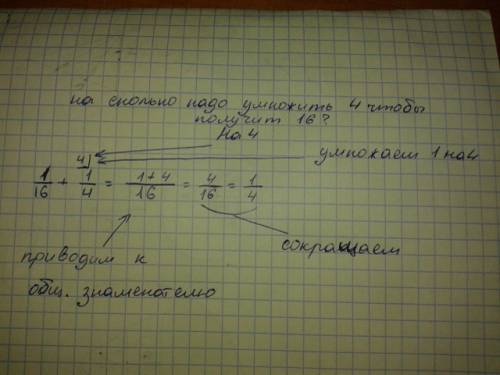 на сколько надо умножить 4 чтобы
получит 16?
на 4
умножаем 1 на 4
1/16 + 4⌋ 1/4 = 1+4/16 = 4/16 = 1/4
сокращаем
приводим к
общ. знаменателю